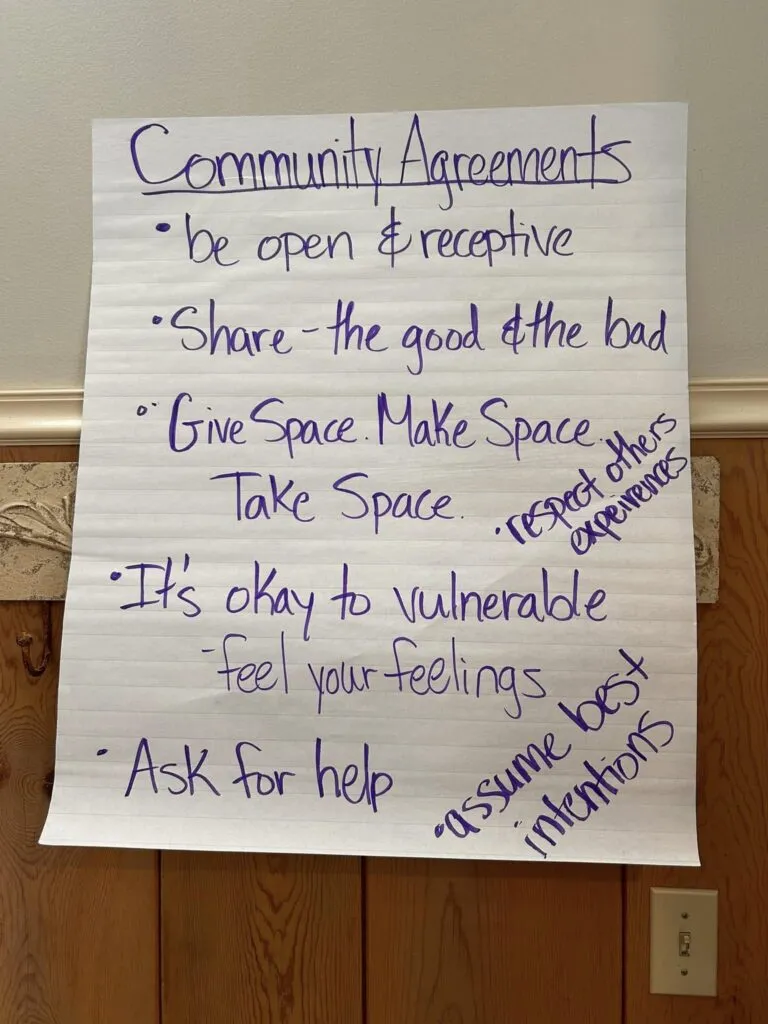 Community Agreements
• be open & receptive
• Share - the good & the bad
• Give Space. Make Space.
Take Space.
• respect others
expeirences
• It's okay to vulnerable
- feel your feelings
• Ask for help
• assume best
intentions